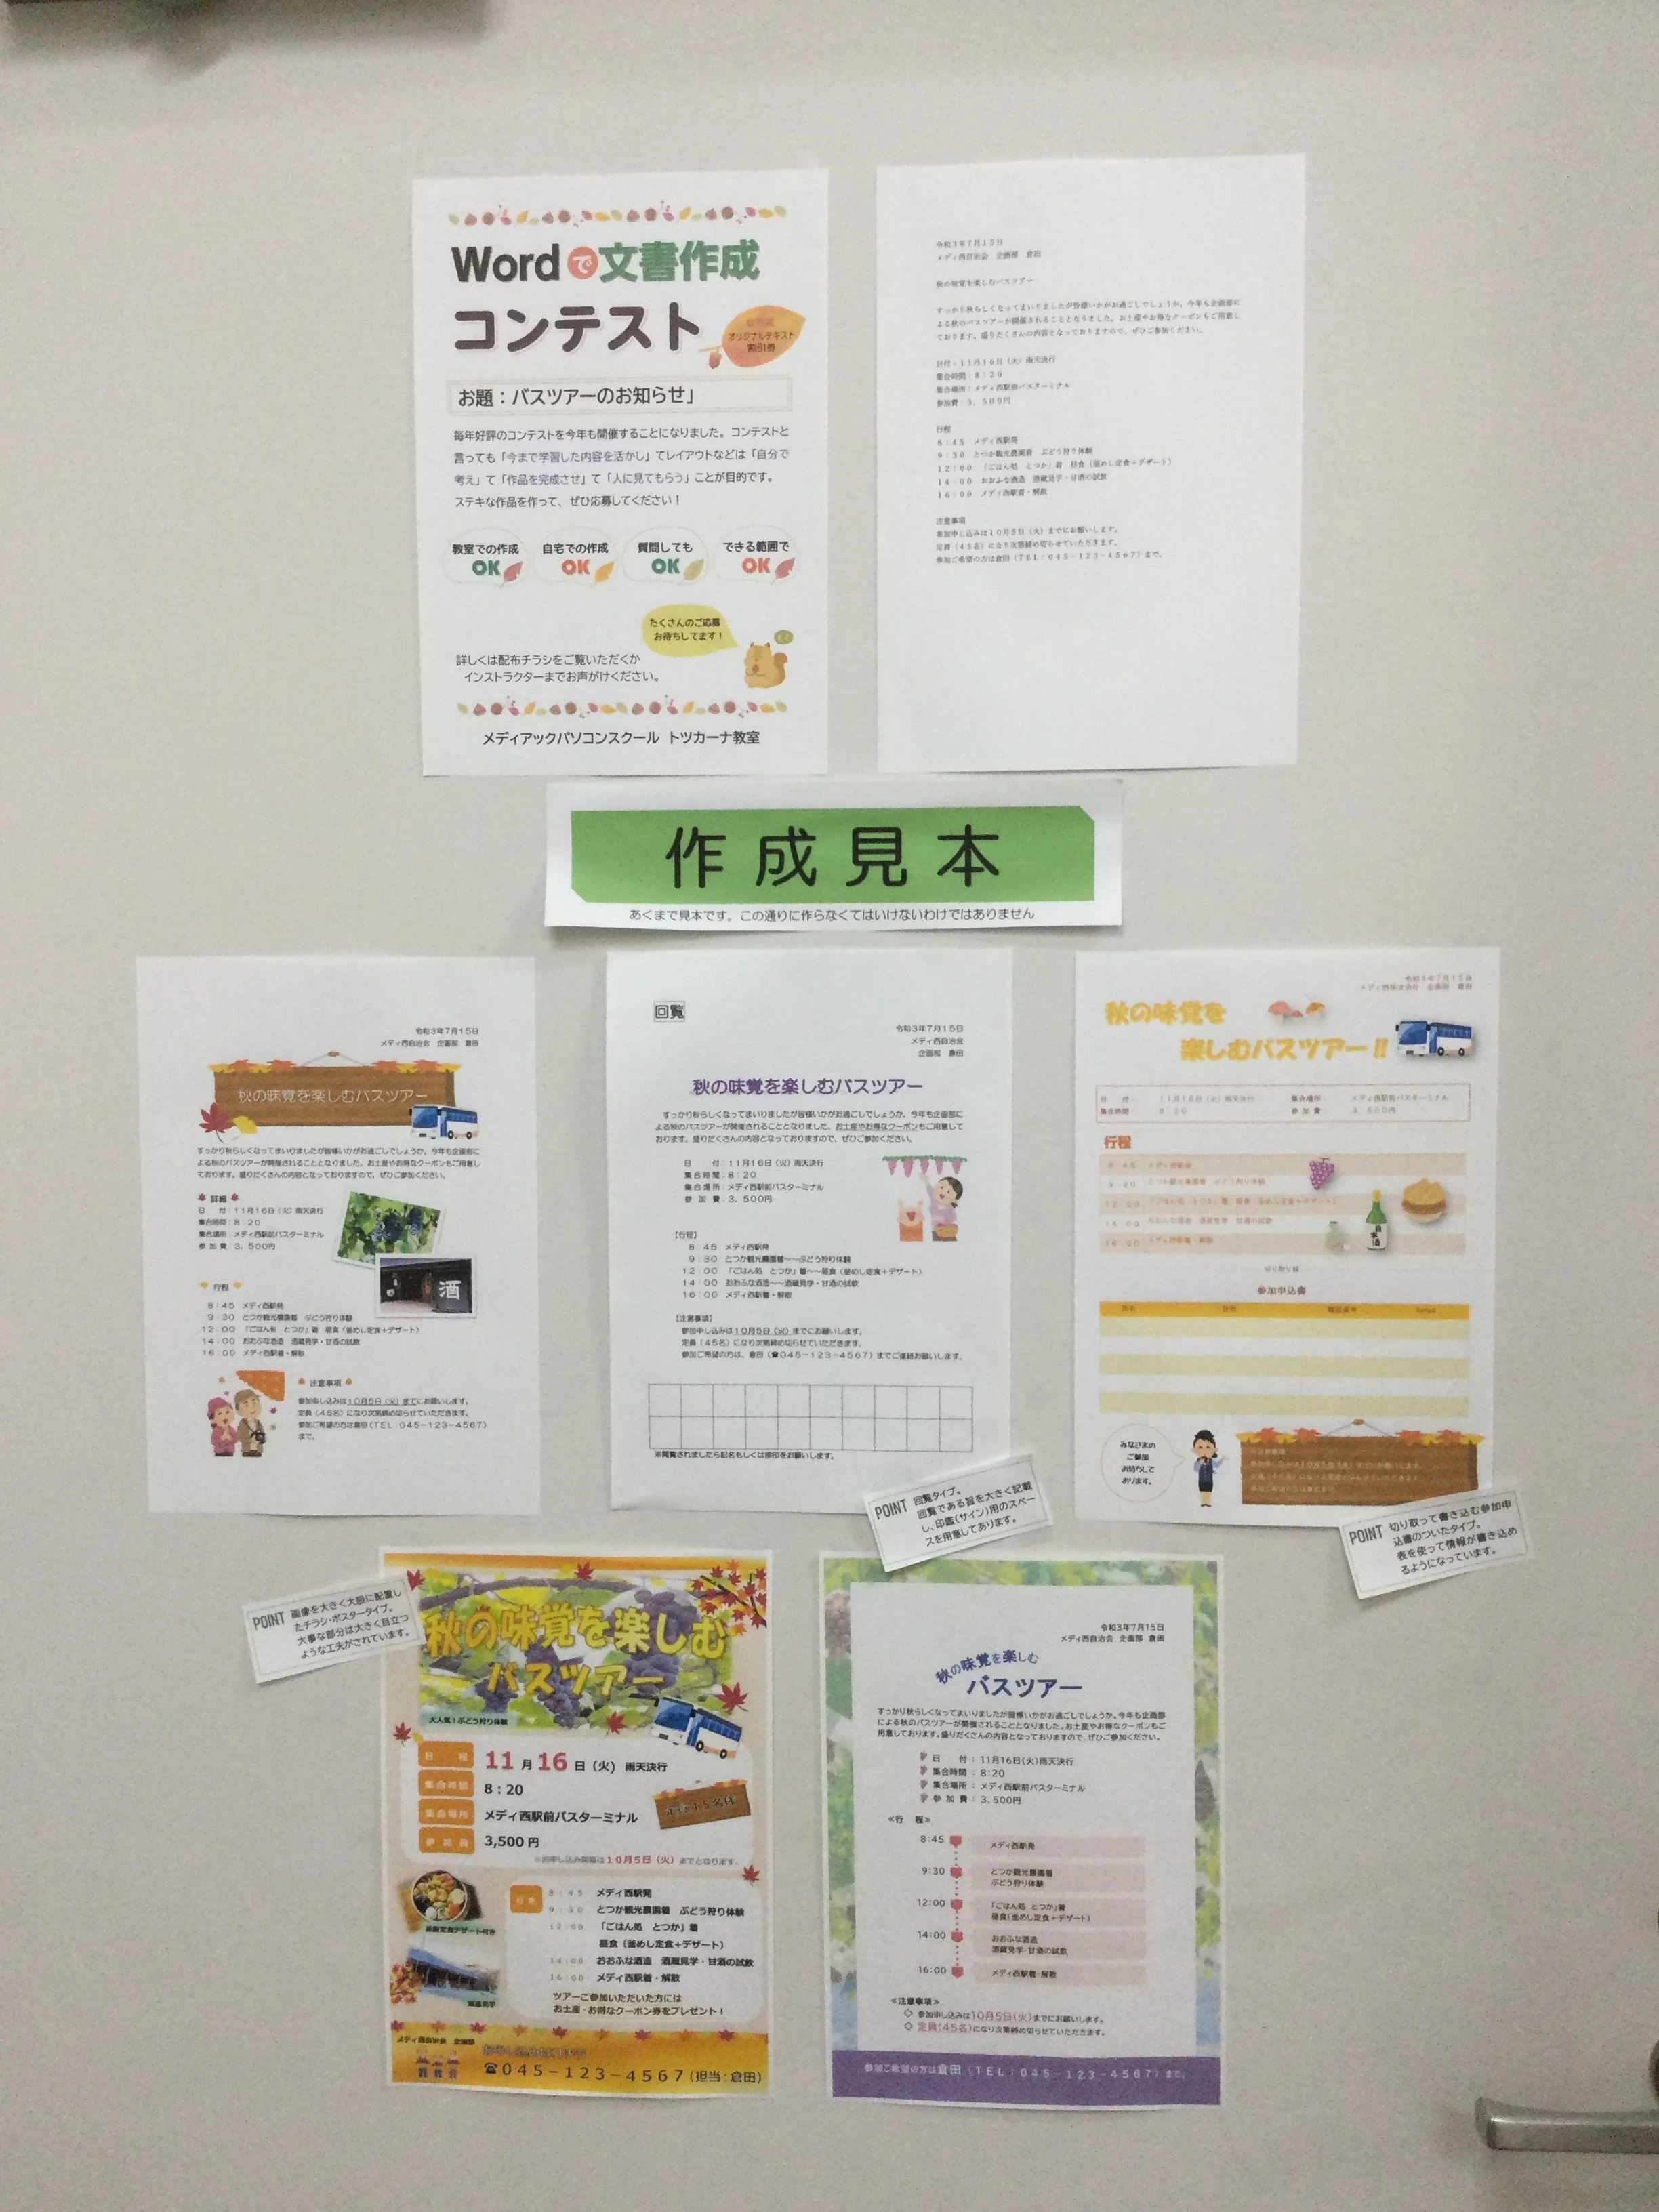 Wordで文書作成
コンテスト
オリジナルテキスト
割引券
お題：バスツアーのお知らせ」
毎年好評のコンテストを今年も開催することになりました。コンテストと
言っても「今まで学習した内容を活かし」てレイアウトなどは「自分で
考え」て「作品を完成させ」て「人に見てもらう」ことが目的です。
ステキな作品を作って、ぜひ応募してください！
教室での作成
OK
自宅での作成
OK
質問しても
OK
できる範囲で
OK
たくさんのご応募
お待ちしてます！
詳しくは配布チラシをご覧いただくか
インストラクターまでお声がけください。
メディアックパソコンスクール トツカーナ教室
令和3年7月15日
メディ西自治会　企画部　倉田
秋の味覚を楽しむバスツアー
すっかり秋らしくなってまいりましたが皆様いかがお過ごしでしょうか。今年も企画部に
よる秋のバスツアーが開催されることとなりました。お土産やお得なクーポンもご用意し
ております。盛りだくさんの内容となっておりますので、ぜひご参加ください。
日付：11月16日（火）雨天決行
集合時間：8：20
集合場所：メディ西駅前バスターミナル
参加費：3，500円
行程
8：45　メディ西駅発
9：30　とつか観光農園着　ぶどう狩り体験
12：00　「ごはん処　とつか」着　昼食（釜めし定食＋デザート）
14：00　おおふな酒造　酒蔵見学・甘酒の試飲
16：00　メディ西駅着・解散
注意事項
参加申し込みは10月5日（火）までにお願いします。
定員（45名）になり次第締め切らせていただきます。
参加ご希望の方は倉田（TEL：045－123－4567）まで。
作成見本
あくまで見本です。この通りに作らなくてはいけないわけではありません
令和3年7月15日
メディ西自治会　企画部　倉田
秋の味覚を楽しむバスツアー
すっかり秋らしくなってまいりましたが皆様いかがお過ごしでしょうか。今年も企画部に
よる秋のバスツアーが開催されることとなりました。お土産やお得なクーポンもご用意し
ております。盛りだくさんの内容となっておりますので、ぜひご参加ください。
詳細
日　　付：11月16日（火）雨天決行
集合時間：8：20
集合場所：メディ西駅前バスターミナル
参 加 費：3，500円
酒
行程
8：45　メディ西駅発
9：30　とつか観光農園着　ぶどう狩り体験
12：00　「ごはん処　とつか」着　昼食（釜めし定食＋デザート）
14：00　おおふな酒造　酒蔵見学・甘酒の試飲
16：00　メディ西駅着・解散
注意事項
参加申し込みは10月5日（火）までにお願いします。
定員（45名）になり次第締め切らせていただきます。
参加ご希望の方は倉田（TEL：045－123－4567）
まで。
回覧
令和3年7月15日
メディ西自治会
企画部　倉田
秋の味覚を楽しむバスツアー
すっかり秋らしくなってまいりましたが皆様いかがお過ごしでしょうか。今年も企画部に
よる秋のバスツアーが開催されることとなりました。お土産やお得なクーポンもご用意して
おります。盛りだくさんの内容となっておりますので、ぜひご参加ください。
日　　付：11月16日（火）雨天決行
集合時間：8：20
集合場所：メディ西駅前バスターミナル
参 加 費：3，500円
【行程】
8：45　メディ西駅発
9：30　とつか観光農園着～～ぶどう狩り体験
12：00　「ごはん処　とつか」着～～昼食（釜めし定食＋デザート）
14：00　おおふな酒造～～酒蔵見学・甘酒の試飲
16：00　メディ西駅着・解散
【注意事項】
参加申し込みは10月5日（火）までにお願いします。
定員（45名）になり次第締め切らせていただきます。
参加ご希望の方は、倉田（☎045－123－4567）までご連絡お願いします。
※閲覧されましたら記名もしくは捺印をお願いします。
POINT 回覧タイプ。
回覧である旨を大きく記載
し、印鑑（サイン）用のスペー
スを用意してあります。
令和3年7月15日
メディ西株式会社　企画部　倉田
秋の味覚を
楽しむバスツアー!!
日　付：　11月16日（火）雨天決行　集合場所：　メディ西駅前バスターミナル
集合時間：　8：20　参 加 費：　3，500円
行程
8：45　メディ西駅発
9：30　とつか観光農園着　ぶどう狩り体験
12：00　「ごはん処　とつか」着　昼食（釜めし定食＋デザート）
14：00　おおふな酒造　酒蔵見学　甘酒の試飲
16：00　メディ西駅着・解散
日本酒
切り取り線
参加申込書
氏名　住所　電話番号
みなさまの
ご参加
お待ちして
おります。
注意事項
POINT 切り取って書き込む参加申
込書のついたタイプ。
表を使って情報が書き込め
るようになっています。
POINT 画像を大きく大胆に配置し
たチラシ・ポスタータイプ。
大事な部分は大きく目立つ
ような工夫がされています。
秋の味覚を楽しむ
バスツアー
大人気！ぶどう狩り体験
日　程　11月16日（火）雨天決行
集合時間　8：20
集合場所　メディ西駅前バスターミナル
参加費　3,500円
定員45名様
※お申し込み期限は10月5日（火）までとなります。
行程
8：45　メディ西駅発
9：30　とつか観光農園着　ぶどう狩り体験
12：00　「ごはん処　とつか」着
昼食（釜めし定食＋デザート）
14：00　おおふな酒造　酒蔵見学・甘酒の試飲
16：00　メディ西駅着・解散
ツアーご参加いただいた方には
お土産・お得なクーポン券をプレゼント！
メディ西自治会　企画部
☎045－123－4567(担当：倉田)
令和3年7月15日
メディ西自治会　企画部　倉田
秋の味覚を楽しむ
バスツアー
すっかり秋らしくなってまいりましたが皆様いかがお過ごしでしょうか。今年も企画部
による秋のバスツアーが開催されることとなりました。お土産やお得なクーポンもご
用意しております。盛りだくさんの内容となっておりますので、ぜひご参加ください。
日　　付：11月16日（火）雨天決行
集合時間：8：20
集合場所：メディ西駅前バスターミナル
参 加 費：3，500円
≪行　程≫
8：45　メディ西駅発
9：30　とつか観光農園着
ぶどう狩り体験
12：00　「ごはん処　とつか」着
昼食（釜めし定食＋デザート）
14：00　おおふな酒造
酒蔵見学・甘酒の試飲
16：00　メディ西駅着・解散
≪注意事項≫
◇ 参加申し込みは10月5日（火）までにお願いします。
◇ 定員（45名）になり次第締め切らせていただきます。
参加ご希望の方は倉田（TEL：045－123－4567）まで。